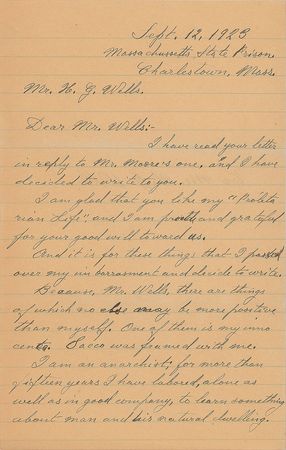 Sept. 12, 1923
Massachussetts State Prison.
Charlestown, Mass.
Mr. H. G. Wells.
Dear Mr. Wells:-
I have read your letter
in reply to Mr. Moore's one, and I have
decided to write to you.
I am glad that you like my "Proleta
rian Life" and I am and grateful
for your good will toward us.
And it is for these things that I passed
over my imbarrosment and decide to write.
Because, Mr. Wells, there are things
of which no may be more positive
than myself. One of them is my inno
cent. Sacco was framed with me.
I am an anarchist; for more than
fifteen years I have labored, alone as
well as in good company, to learn something
about man and his natural dwelling.